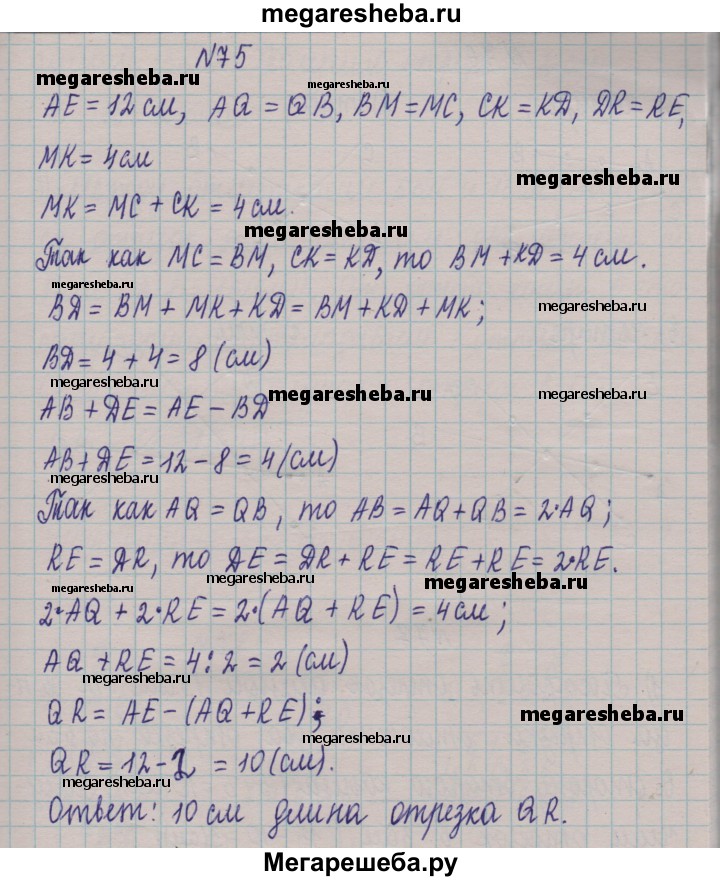 megaresheba.ru
N75
megaresheba.ru
megaresheba.ru
AE = 12 см, AQ = QB, BM = MC, CK = KD, DR = RE,
MK = 4 см
megaresheba.ru
MK = MC + CK = 4 см.
megaresheba.ru
Так как MC = BM, CK = KD, то BM + KD = 4 см.
megaresheba.ru
BD = BM + MK + KD = BM + KD + MK;
megaresheba.ru
BD = 4 + 4 = 8 (см)
megaresheba.ru
megaresheba.ru
megaresheba.ru
AB + DE = AE - BD
AB + DE = 12 - 8 = 4 (см)
megaresheba.ru
Так как AQ = QB, то AB = AQ + QB = 2·AQ;
RE = DR, то DE = DR + RE = RE + RE = 2·RE.
megaresheba.ru
megaresheba.ru
megaresheba.ru
2·AQ + 2·RE = 2·(AQ + RE) = 4 см;
AQ + RE = 4 : 2 = 2 (см)
megaresheba.ru
QR = AE - (AQ + RE);
megaresheba.ru
megaresheba.ru
QR = 12 - 2 = 10 (см).
megaresheba.ru
Ответ: 10 см длина отрезка QR.
Мегарешеба.ру